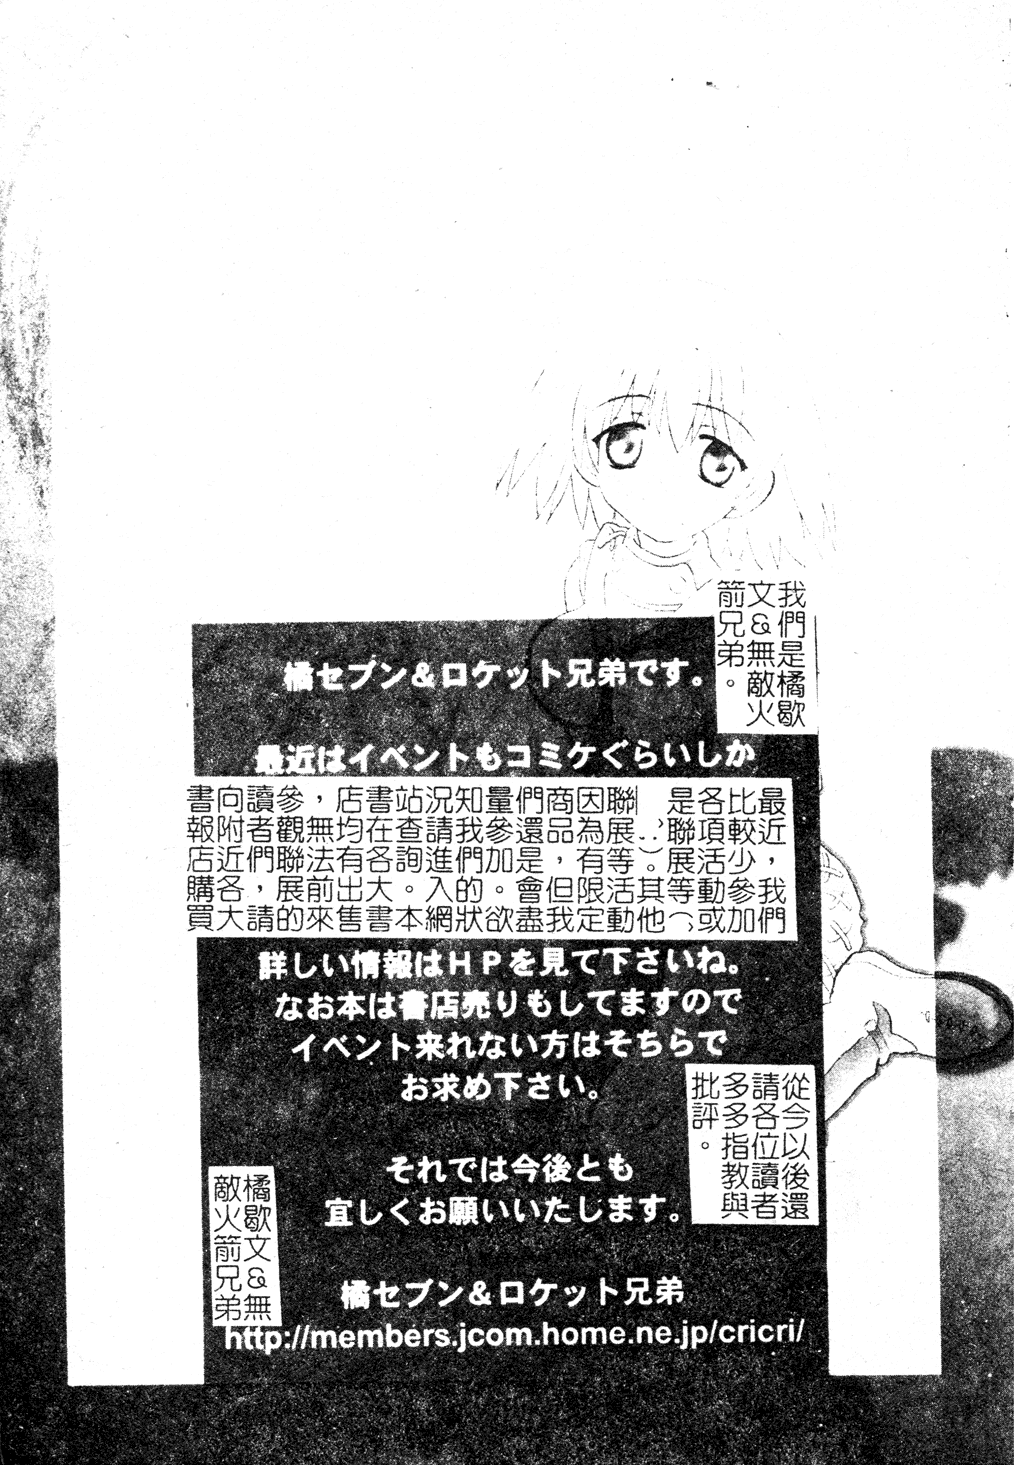 我們是橘歇
文&無敵火
箭兄弟。
橘セブン&ロケット兄弟です。
最近はイベントもコミケぐらいしか
最近，我們
比較少參加
各項活動或
是聯展等（
）。其他
聯展等活動
因為有限定
商品，但我
們還是會盡
量參加。欲
知我們的狀
況請進入網
站查詢。本
書在各大書
店均有出售
，無法前來
參觀聯展的
讀者們，請
向附近各大
書報店購買
詳しい情報はHPを見て下さいね。
なお本は書店売りもしてますので
イベント来れない方はそちらで
お求め下さい。
從今以後還
請各位讀者
多多指教與
批評。
それでは今後とも
宜しくお願いいたします。
橘歇文&無
敵火箭兄弟
橘セブン&ロケット兄弟
http://members.jcom.home.ne.jp/cricri/